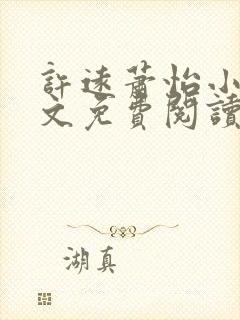 許遠蕭怡小
文免費閱讀
湖真